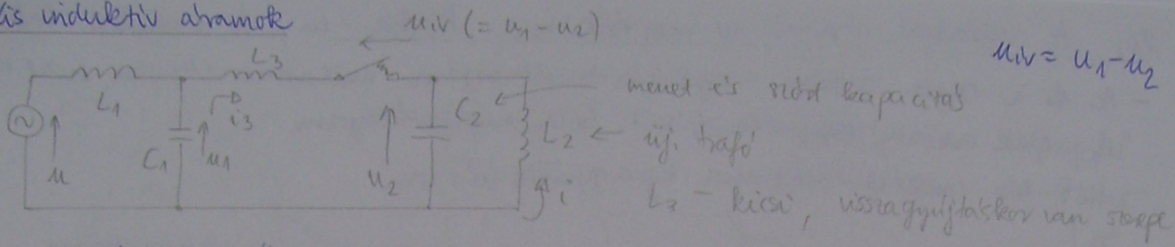 kis induktív áramok
uív (= u1 - u2)
uív = u1 - u2
L3
L1
i3
C1
u1
u
u2
C2
menet és szórt kapacitás
L2 ← üj. trafó
i
L3 - kicsi, visszagyújtáskor van szerepe